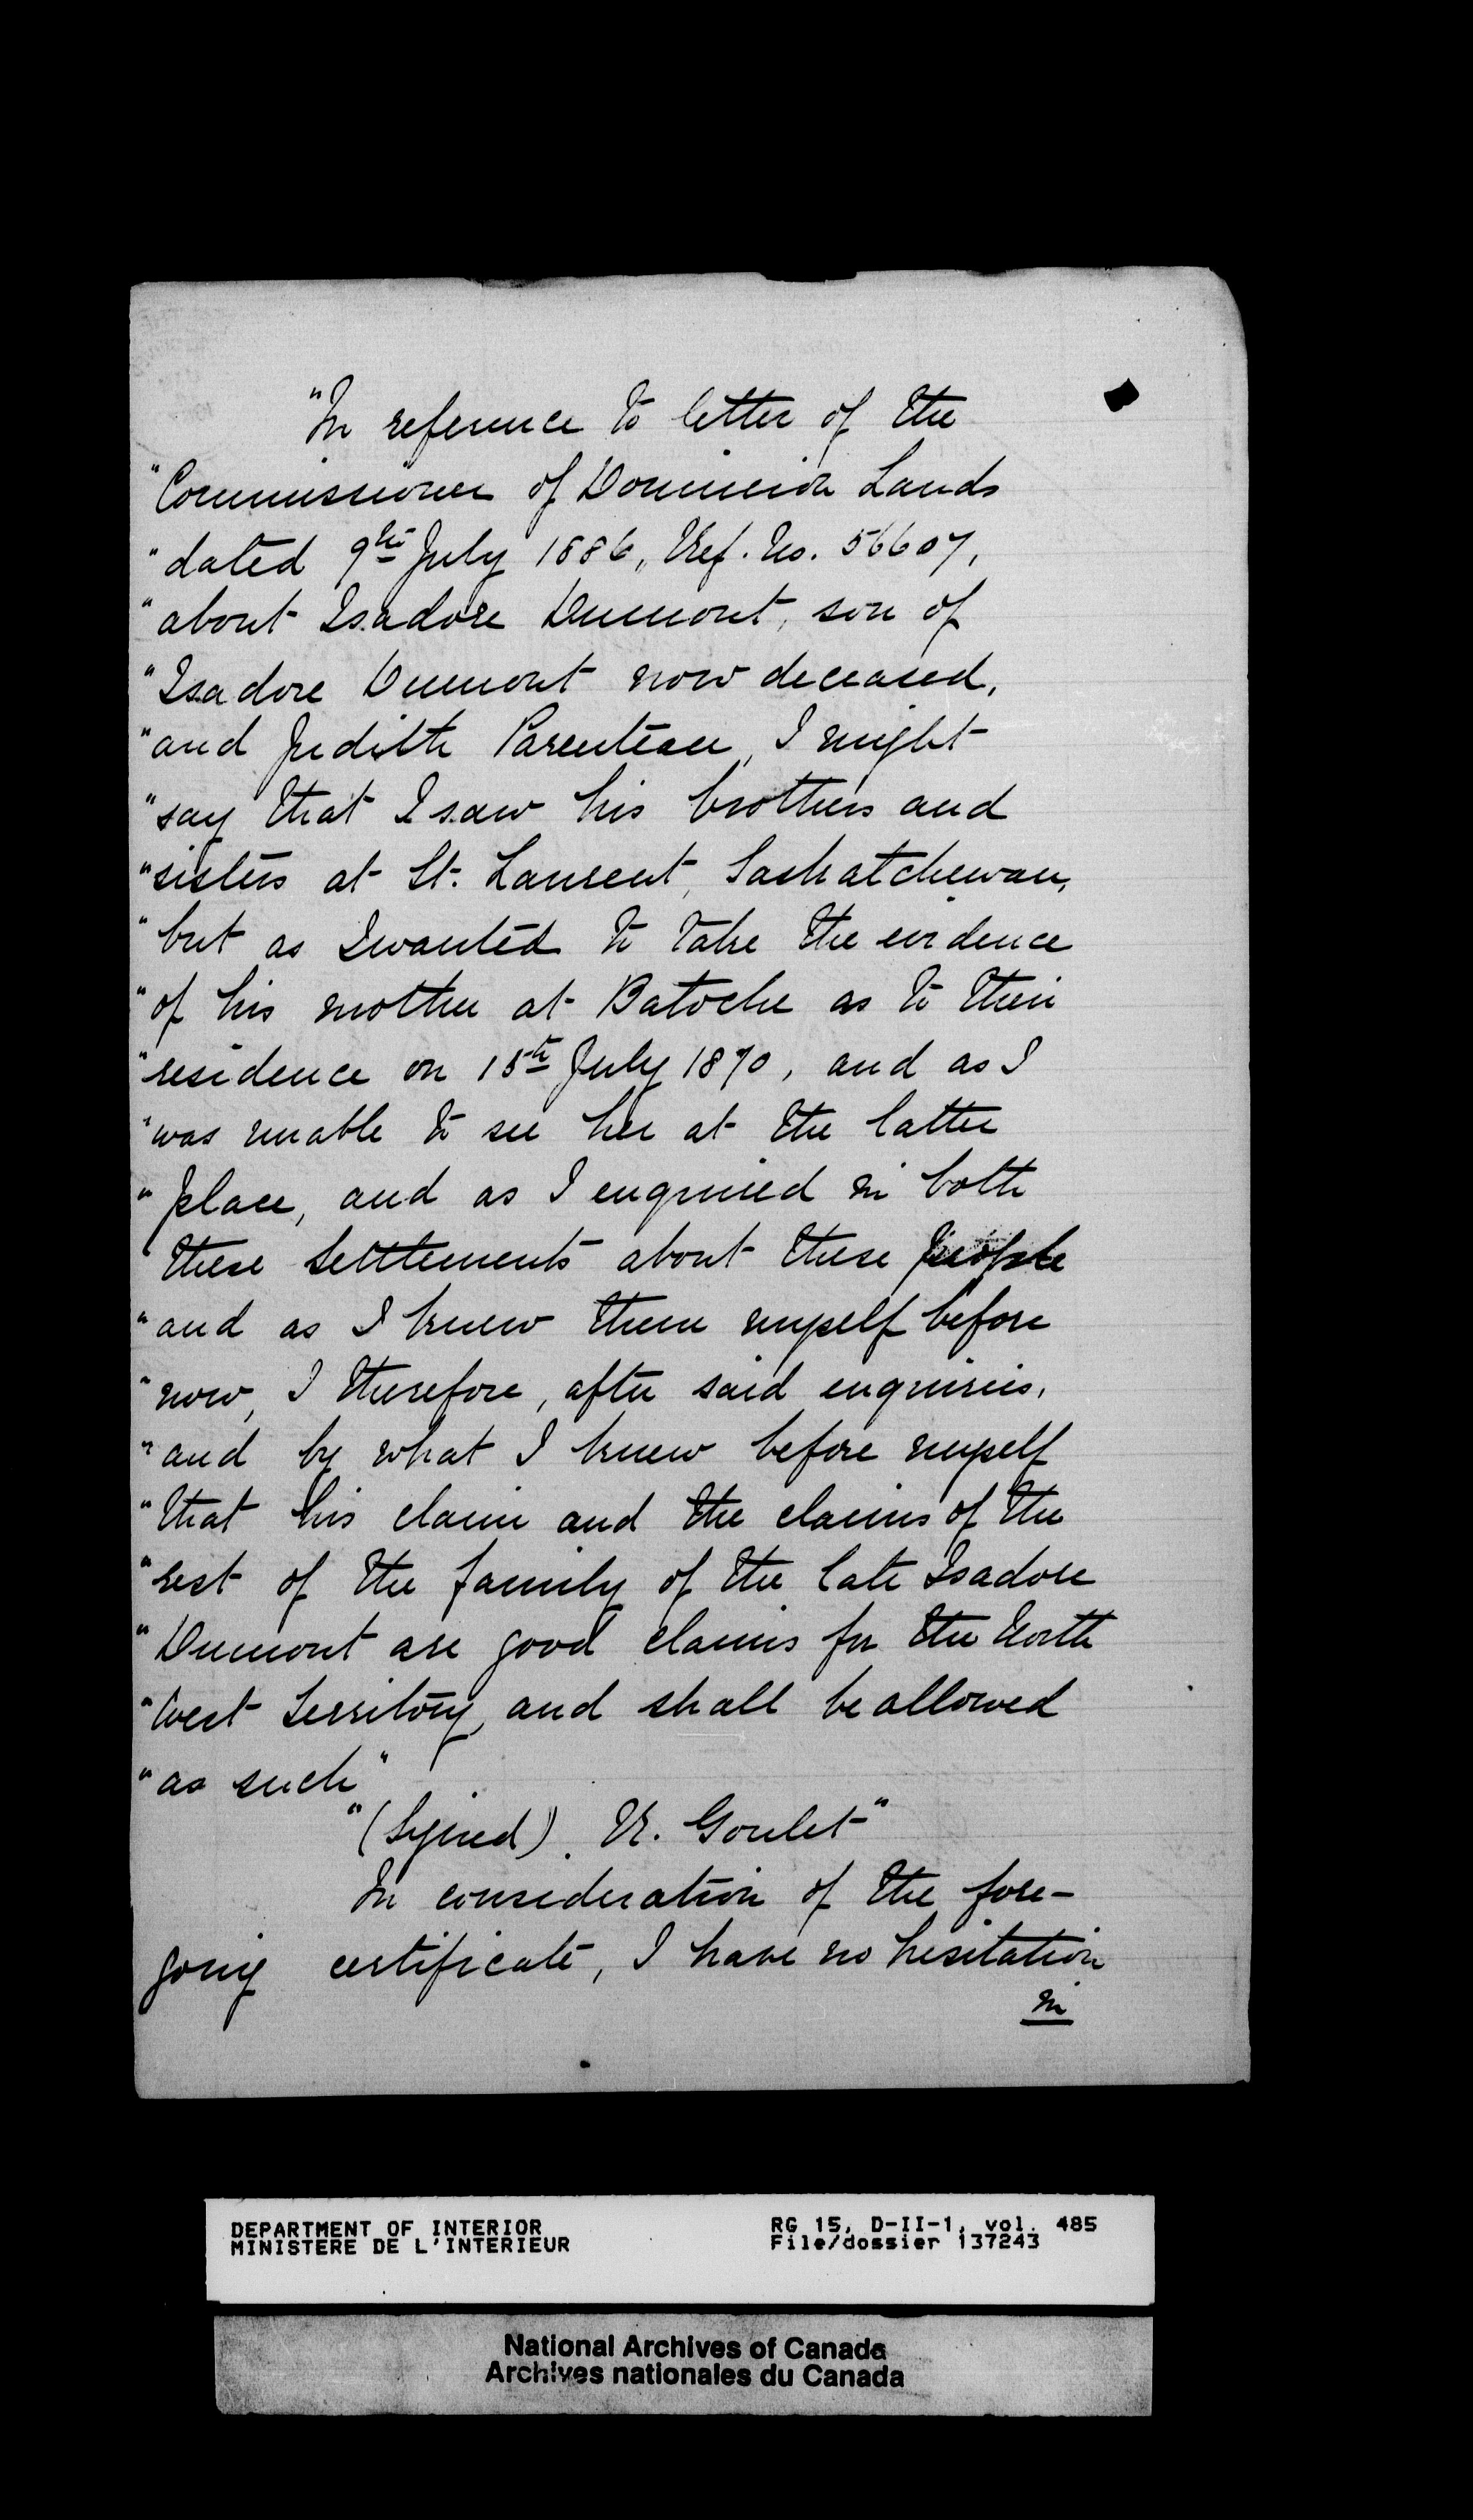 "In reference to letter of the
"Commissioner of Dominion Lands
"dated 9th July 1886, Ref. No. 56607,
"about Isadore Dumont, son of
"Isadore Dumont now deceased,
"and Judith Parenteau, I might
"say that I saw his brothers and
"sisters at St. Laurent, Saskatchewan,
"but as I wanted to take the evidence
"of his mother at Batoche as to their
"residence on 15th July 1870, and as I
"was unable to see her at the latter
"place, and as I enquired in both
"these settlements about these people
"and as I knew them myself before
"now, I therefore, after said enquiries,
"and by what I knew before myself
"that his claim and the claims of the
"rest of the family of the late Isadore
"Dumont are good claims for the North
"West Territory, and shall be allowed
"as such"
"(Signed). R. Goulet"
In consideration of the fore-
going certificate, I have no hesitation
in
DEPARTMENT OF INTERIOR RG 15, D-II-1, vol. 485
MINISTERE DE L'INTERIEUR File/dossier 137243
National Archives of Canada
Archives nationales du Canada